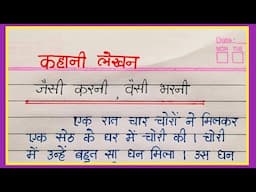 Date:
MON TUE
कहानी लेखन
जैसी करनी, वैसी भरनी
एक रात चार चोरों ने मिलकर
एक सेठ के घर में चोरी की। चोरी
में उन्हें बहुत सा धन मिला। उस धन